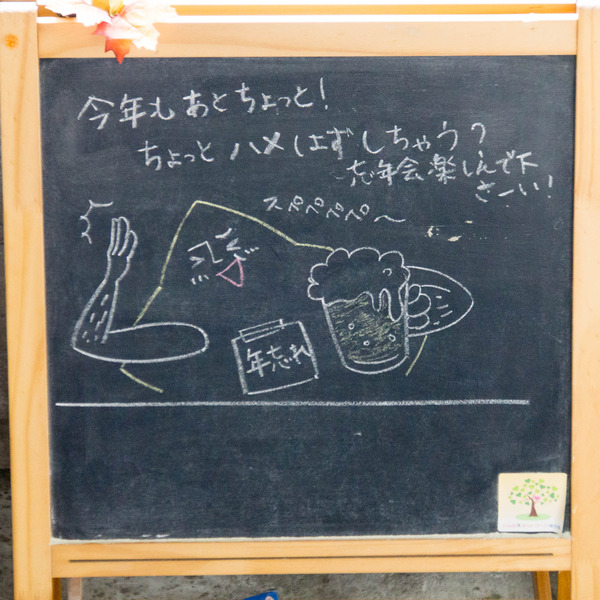 今年もあとちょっと!
ちょっとハメはずしちゃう?
忘年会楽しんで下
さーい!
スペペペペ〜
年忘れ